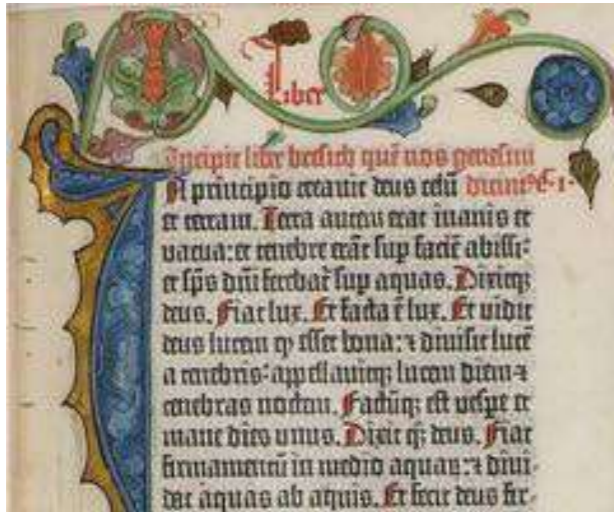 Liber
Incipit liber bresich quē nos genesim
In principio creavit deus celū dicim⁹. C. 1.
et terram. Terra autem erat inanis et
vacua: et tenebre erāt sup faciē abissi:
et sp̄s dn̄i ferebat̄ sup aquas. Dixitq;
deus. Fiat lux. Et facta ē lux. Et vidit
deus lucem q esset bona: ⁊ divisit lucē
a tenebris: appellavitq; lucem diem ⁊
tenebras noctem. Factūq; est vespe et
mane dies unus. Dixit q; deus. Fiat
firmamentū in medio aquaꝝ: ⁊ divi-
dat aquas ab aquis. Et fecit deus fir-